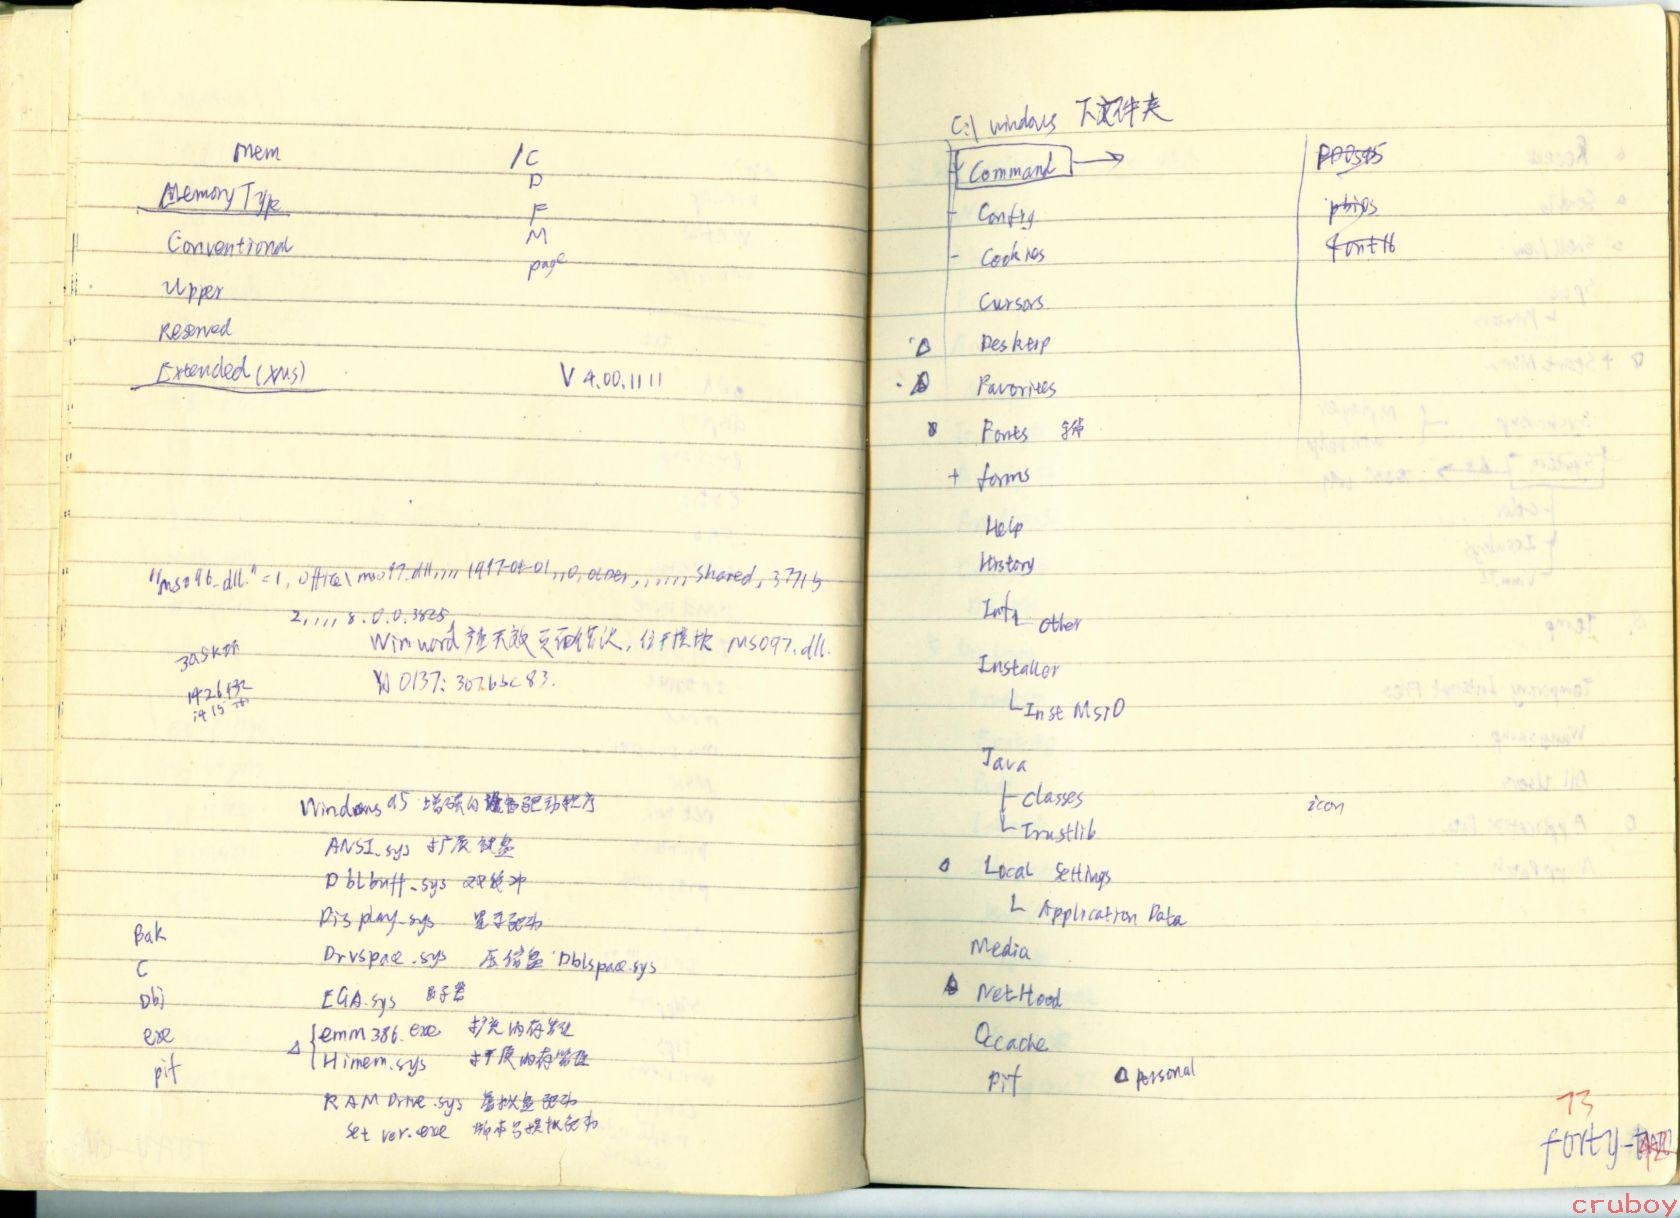 mem
/C
D
F
M
page
Memory Type
Conventional
Upper
Reserved
Extended (XMS)
V 4.00.1111
"mso96_dll."=1, office\mso97.dll,,,, 1997-01-01,,0, other,,,,,, shared, 37715
2,,,, 8.0.0.3825
Winword 产生无效页面错误, 位于模块 MSO97.dll.
0137: 307bbc83.
Windows 95 增强的设备驱动程序
ANSI.sys 扩展键盘
Dblbuff.sys 双缓冲
Display.sys 显示驱动
Drvspace.sys 压缩盘 Dblspace.sys
EGA.sys 显示器
emm386.exe 扩充内存管理
Himem.sys 扩展内存管理
RAM Drive.sys 虚拟盘驱动
Set ver.exe 版本号模拟驱动
Bak
C
Obj
exe
pif
C:\ windows 下文件夹
Command →
- Config
- Cookies
Cursors
Desktop
Favorites
Fonts 字体
+ forms
Help
History
Inf
other
Installer
Inst Msi0
Java
classes
Trustlib
Local Settings
Application Data
Media
NetHood
Occache
pif
personal
pbios
font16
icon
73
forty-
cruboy